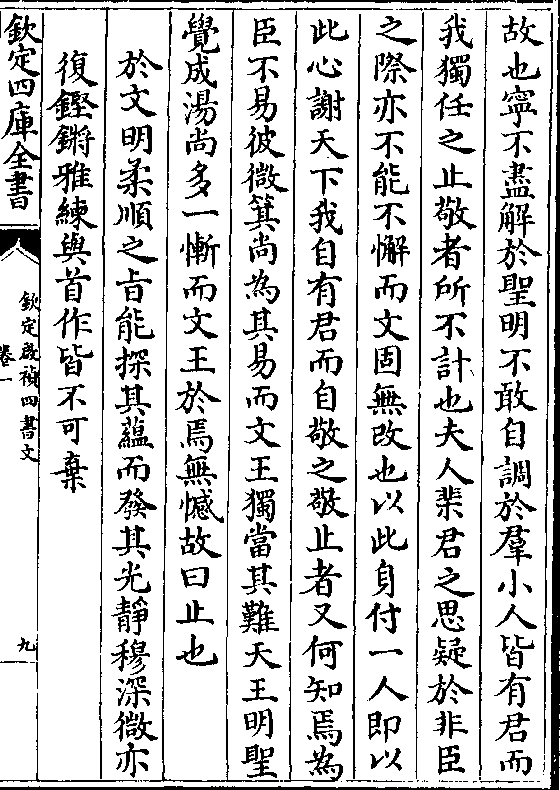 故也寧不盡解於聖明不敢自調於羣小人皆有君而
我獨任之止敬者所不計也夫人棐君之思疑於非臣
之際亦不能不懈而文固無改也以此身付一人即以
此心謝天下我自有君而自敬之敬止者又何知焉為
臣不易彼微箕尚為其易而文王獨當其難天王明聖
覺成湯尚多一慚而文王於焉無憾故曰止也
於文明柔順之旨能探其蘊而發其光靜穆深微亦
復鏗鏘雅練與首作皆不可棄
欽定四庫全書
欽定啟禎四書文
卷一
九